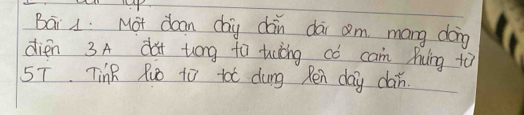 Bài 1. Một đoạn dây dẫn dài 2m. mang dòng
điện 3A đặt trong từ trường có cảm hứng từ
5T. Tính lực từ tác dụng lên dây dẫn.